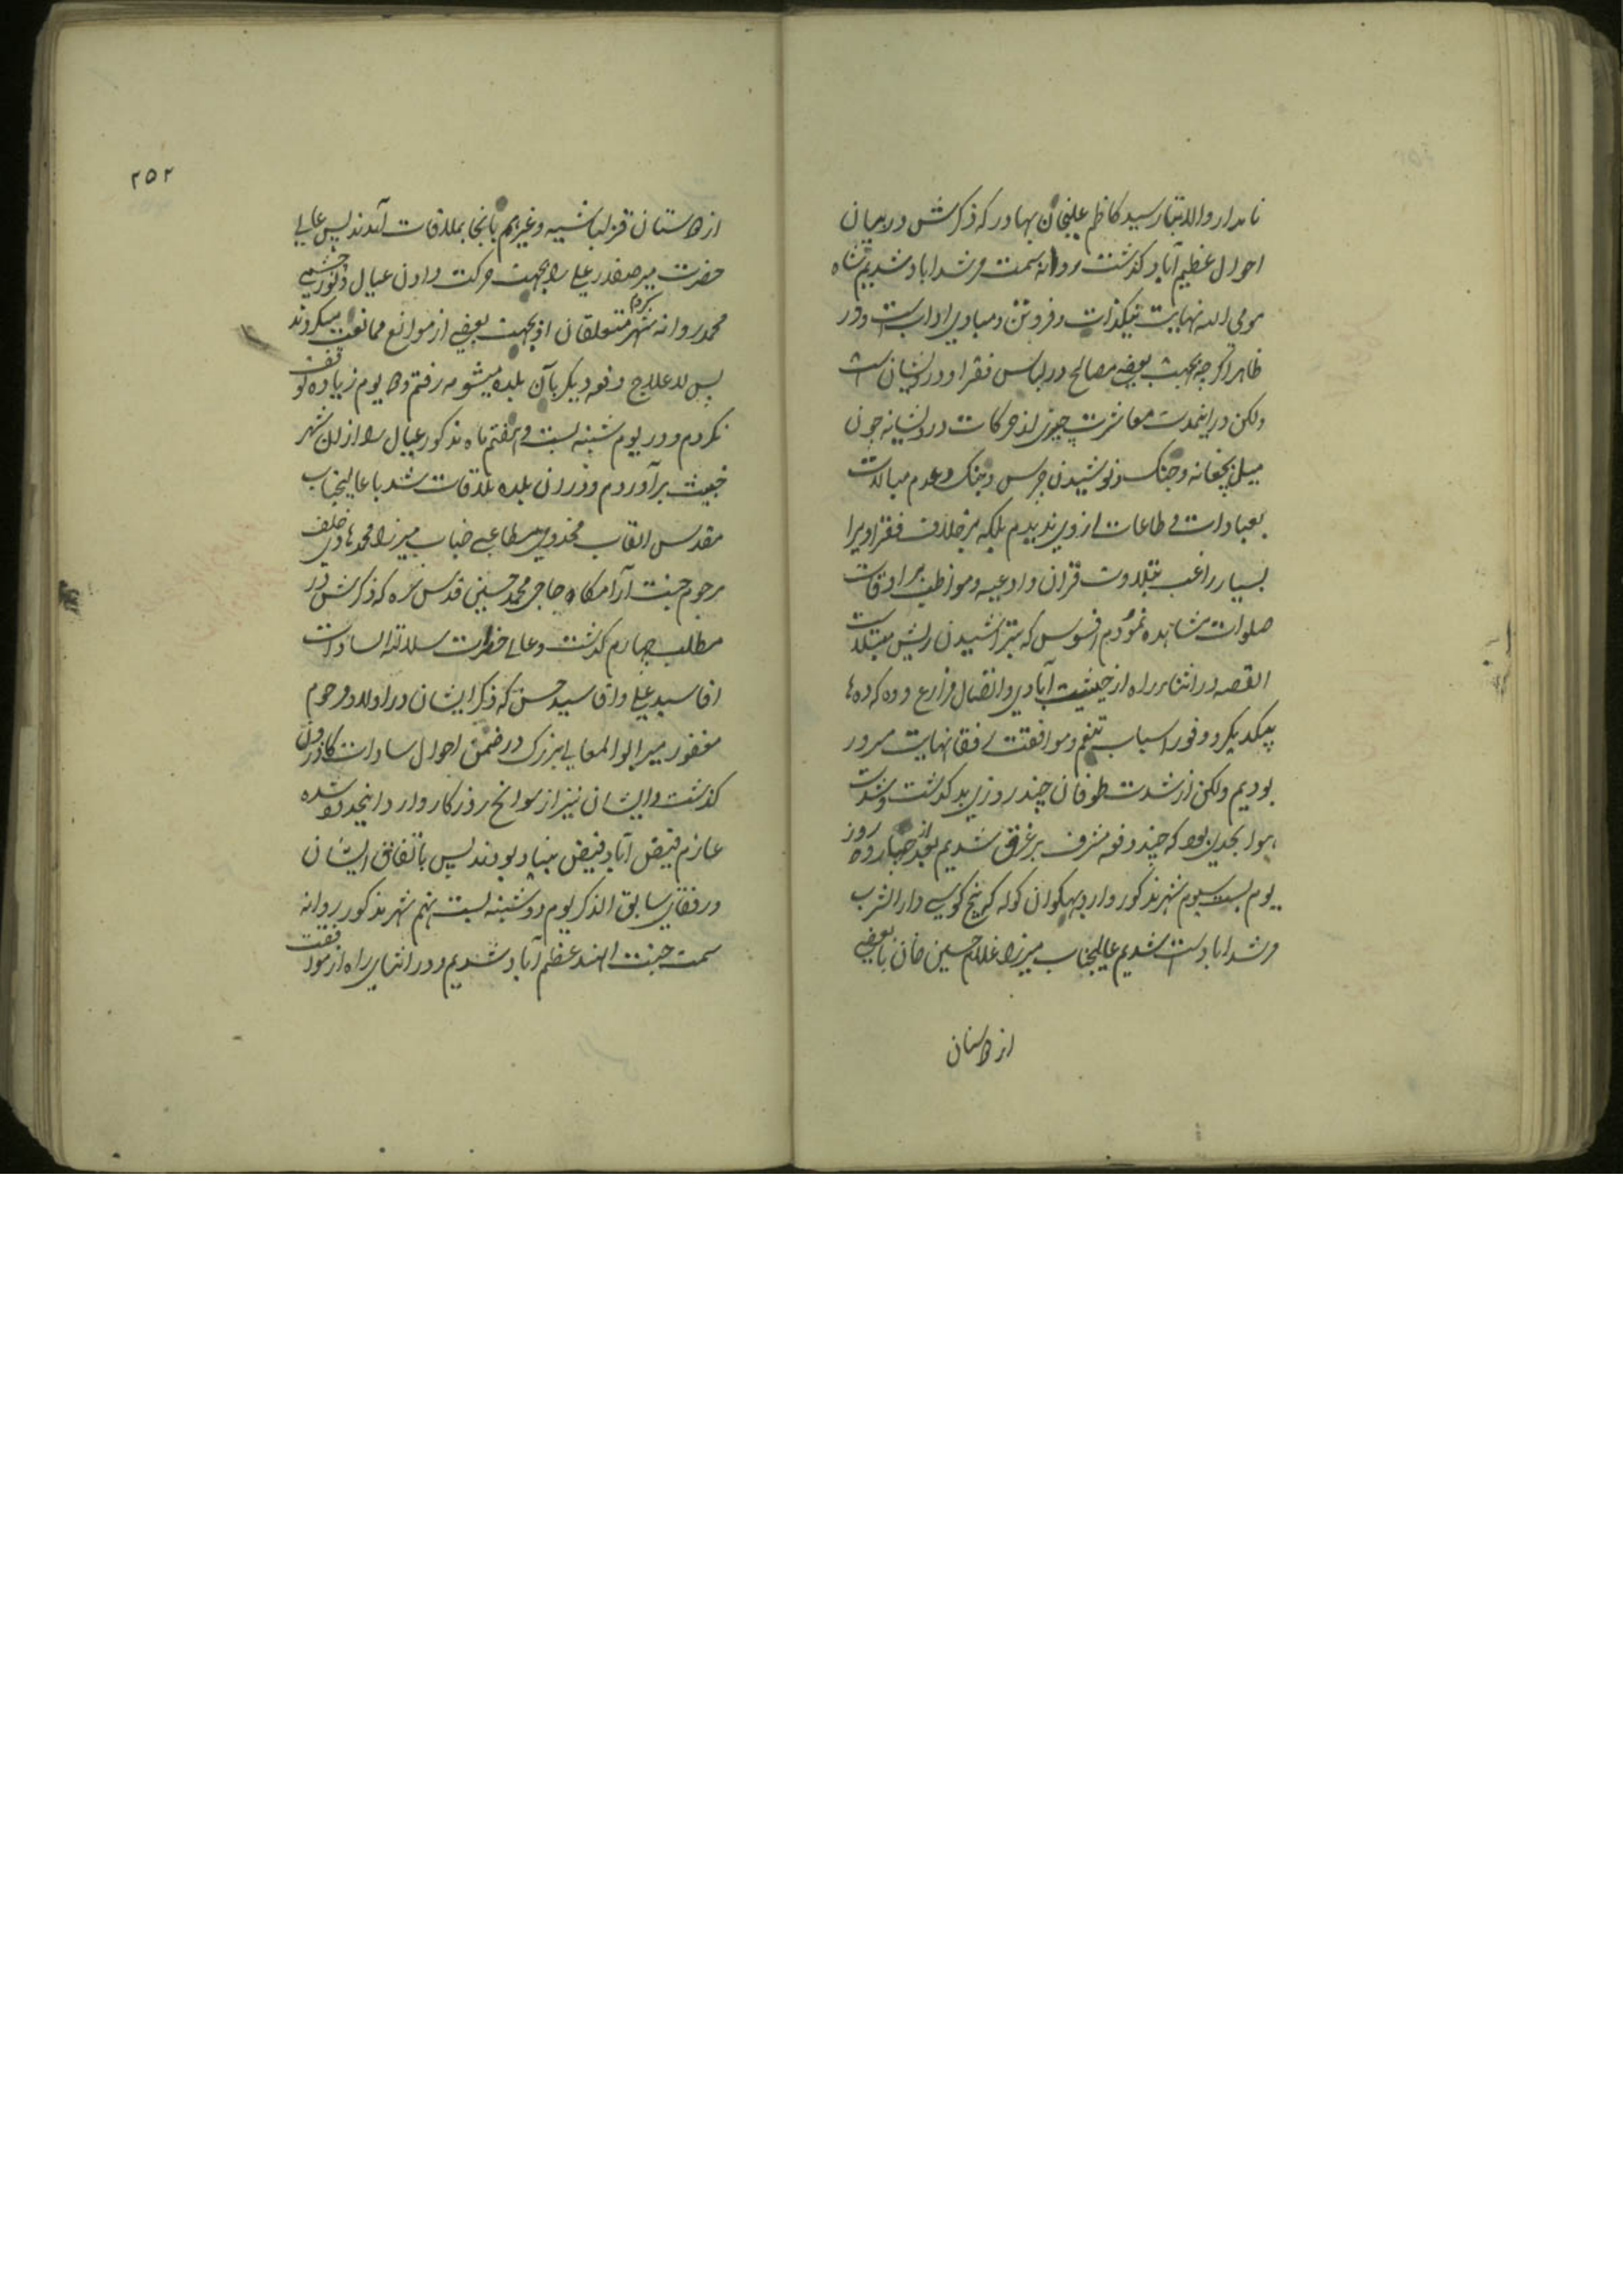 نامدار والاتبار سید کاظم علیخان بهادر که ذکرش در بیان
احوال عظیم آباد کذشت روانه سمت مرشداباد شدیم شاه
مومی الیه نهایت نیکذات و فروتن و مبادی اداب است و در
ظاهر اکرچه بجهت بعضی مصالح در لباس فقرا و درویشان است
ولکن در اینمدت معاشرت چیزی از حرکات درویشانه چون
میل بچغانه و چنک و نوشیدن چرس و بنک و عدم مبالات
بعبادات و طاعات از وی ندیدم بلکه بر خلاف فقرا ویرا
بسیار راغب بتلاوت قران و ادعیه و مواظب بر اوقات
صلوات مشاهده نمودم افسوس که بتراشیدن ریش مبتلاست
القصه در اثناء راه از حیثیت آبادی و اتصال مزارع و دهکده ها
بیکدیکر و وفور اسباب تنعم و موافقت رفقا نهایت مسرور
بودیم ولکن از شدت طوفان چند روزی بد کذشت و شدت
هوا بحدی بود که چند دفعه مشرف بر غرق شدیم بعد از چهارده روز
یوم بیست سیوم شهر مذکور وارد بهکوان کوله که پنج کروهی دار الشرب
مرشداباد است شدیم عالیجناب میرزا غلام حسین خان با بعضی
از دوستان
۲۵۲
از دوستان قزلباشیه و غیرهم بانجا بملاقات آمدند پس عالی
حضرت میر صفدر علی را بجهت حرکت دادن عیال و نورچشمی
محمد روانه شهر کردم متعلقان او بجهت بعضی از موانع ممانعت میکردند
پس لاعلاج دفعه دیکر بآن بلده میشومه رفتم و دو یوم زیاده توقف
نکردم و در یوم شنبه بیست و هفتم ماه مذکور عیال را از ان شهر
خبیث برآوردم و در ان بلده ملاقات شد با عالیجناب
مقدس القاب مخدومی مطاعی جناب میرزا محمد هادی خلف
مرحوم جنت آرامکاه حاجی محمد حسین قدس سره که ذکرش در
مطلب چهارم کذشت و عالی حضرت سلالة السادات
اقا سید علی و اقا سید حسن که ذکر ایشان در اولاد مرحوم
مغفور میر ابو المعالی بزرک در ضمن احوال سادات کازرون
کذشت و ایشان نیز از سوانح روزکار وارد اینحدود شده
عازم فیض آباد فیض بنیاد بودند پس باتفاق ایشان
و رفقای سابق الذکر یوم دوشنبه بیست نهم شهر مذکور روانه
سمت جنت الهند عظیم آباد شدیم و در اثنای راه از موافقت